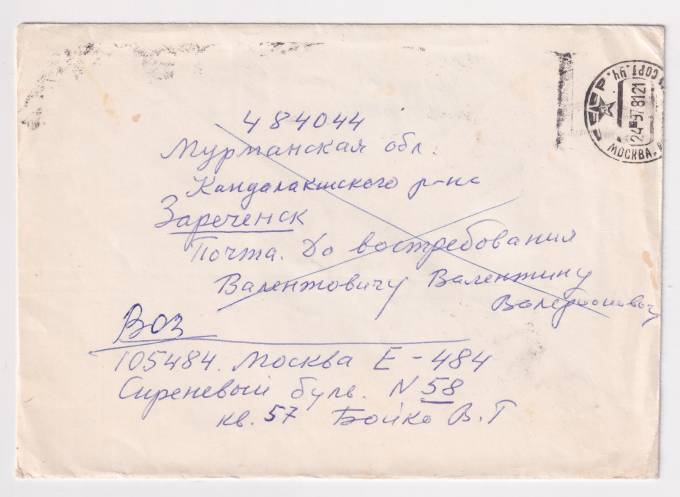 484044
Мурманская обл.
Кандалакшского р-на
Зареченск
Почта. До востребования
Валентовичу Валентину
Валерионовичу
Воз
105484. Москва Е-484
Сиреневый бульв. N 58
кв. 57 Бойко В.Г
СССР
МОСКВА,